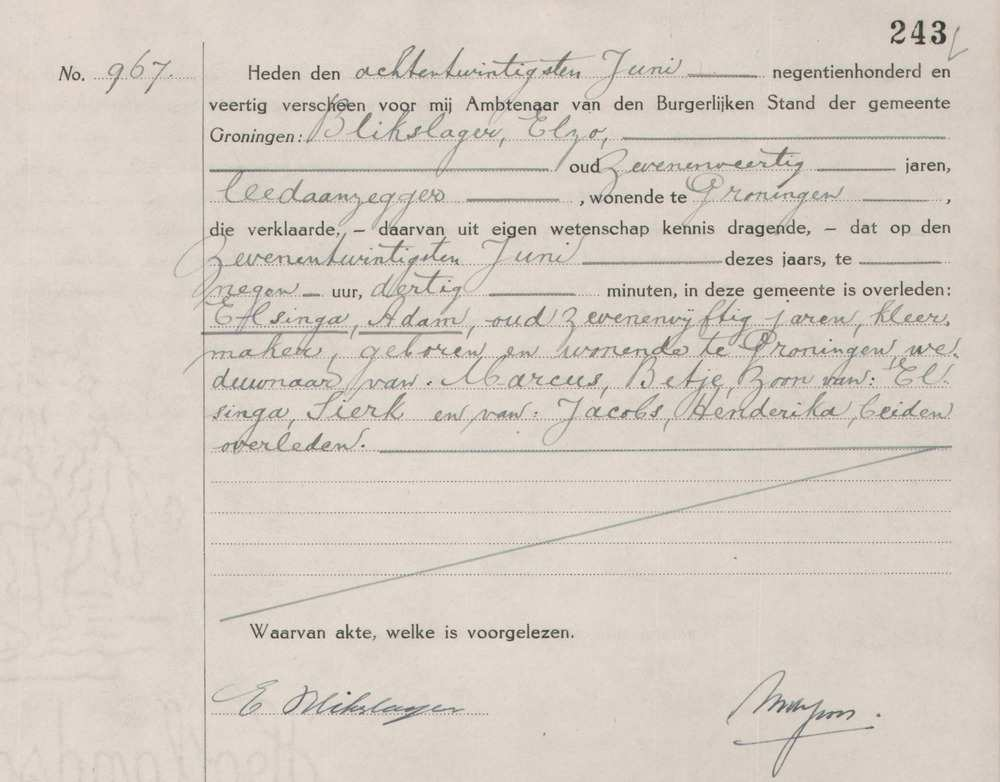 243
No. 967. Heden den achtentwintigsten Juni negentienhonderd en
veertig verscheen voor mij Ambtenaar van den Burgerlijken Stand der gemeente
Groningen: Blikslager, Elzo,
oud zevenenveertig jaren,
leedaanzegger, wonende te Groningen,
die verklaarde, – daarvan uit eigen wetenschap kennis dragende, – dat op den
zevenentwintigsten Juni dezes jaars, te
negen uur, dertig minuten, in deze gemeente is overleden:
Elsinga, Adam, oud zevenenvijftig jaren, kleer-
maker, geboren en wonende te Groningen, we-
duwnaar van: Marcus, Betje, Zoon van: El-
singa, Sierk en van: Jacobs, Henderika, beiden
overleden.
Waarvan akte, welke is voorgelezen.
E Blikslager